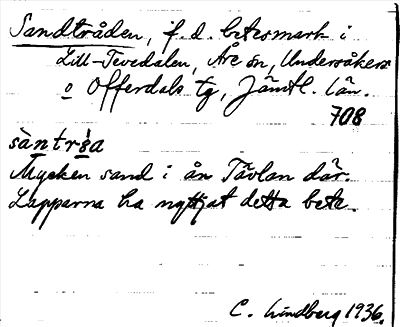 Sandtråden, f. d. betesmark i
Lill-Tevedalen, Åre sn, Undersåkers
o Offerdals tg, Jämtl. län.
708
sàntrȧ̀a
Mycken sand i ån Tävlan där.
Lapparna ha nyttjat detta bete.
C. Lindberg 1936.